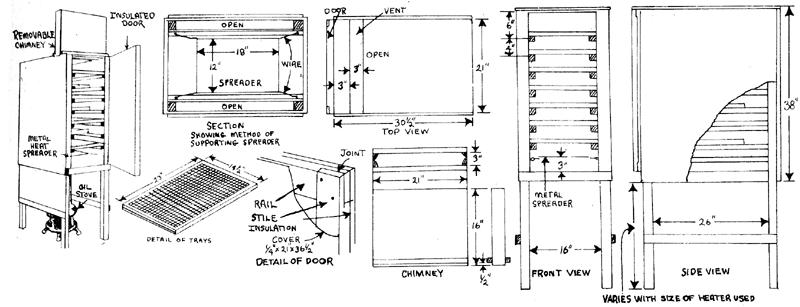 REMOVABLE
CHIMNEY
INSULATED
DOOR
METAL
HEAT
SPREADER
OIL
STOVE
OPEN
18"
12"
WIRE
SPREADER
OPEN
SECTION
SHOWING METHOD OF
SUPPORTING SPREADER
DETAIL OF TRAYS
DOOR
VENT
OPEN
3"
3"
21"
30½"
TOP VIEW
JOINT
RAIL
STILE
INSULATION
COVER
¼"x21x36½"
DETAIL OF DOOR
3"
21"
16"
½"
CHIMNEY
6"
4"
3"
METAL
SPREADER
16"
FRONT VIEW
38"
26"
SIDE VIEW
VARIES WITH SIZE OF HEATER USED